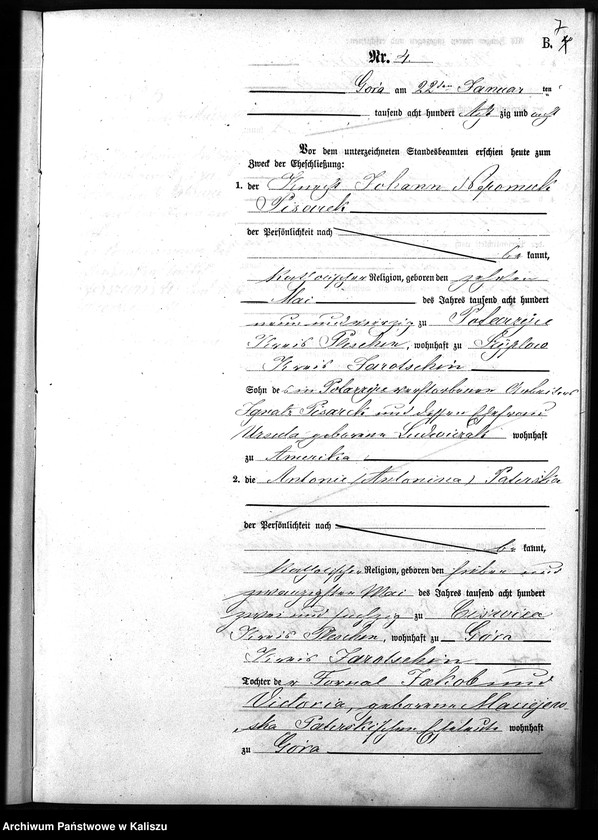 7
B.
Nr. 4.
Góra am 22ten Januar ten
tausend acht hundert acht zig und acht
Vor dem unterzeichneten Standesbeamten erschien heute zum
Zweck der Eheschließung:
1. der Knecht Johann Nepomuk
Pisarek
der Persönlichkeit nach
be kannt,
katholischer Religion, geboren den zehnten
Mai des Jahres tausend acht hundert
neun und vierzig zu
Kreis Pleschen, wohnhaft zu
Kreis Jarotschin
Sohn des in verstorbenen Arbeiters
Ignatz Pisarek und dessen Ehefrau
Ursula geborene Ludwiczak wohnhaft
zu Amerika
2. die Antonie (Antonina) Paterska
der Persönlichkeit nach
be kannt,
katholischer Religion, geboren den sieben und
zwanzigsten Mai des Jahres tausend acht hundert
zwei und sechzig zu
Kreis Pleschen, wohnhaft zu Góra
Kreis Jarotschin
Tochter der Fornal Jakob und
Victoria, geborene Maciejew-
ska Paterskischen Eheleute wohnhaft
zu Góra
Archiwum Państwowe w Kaliszu